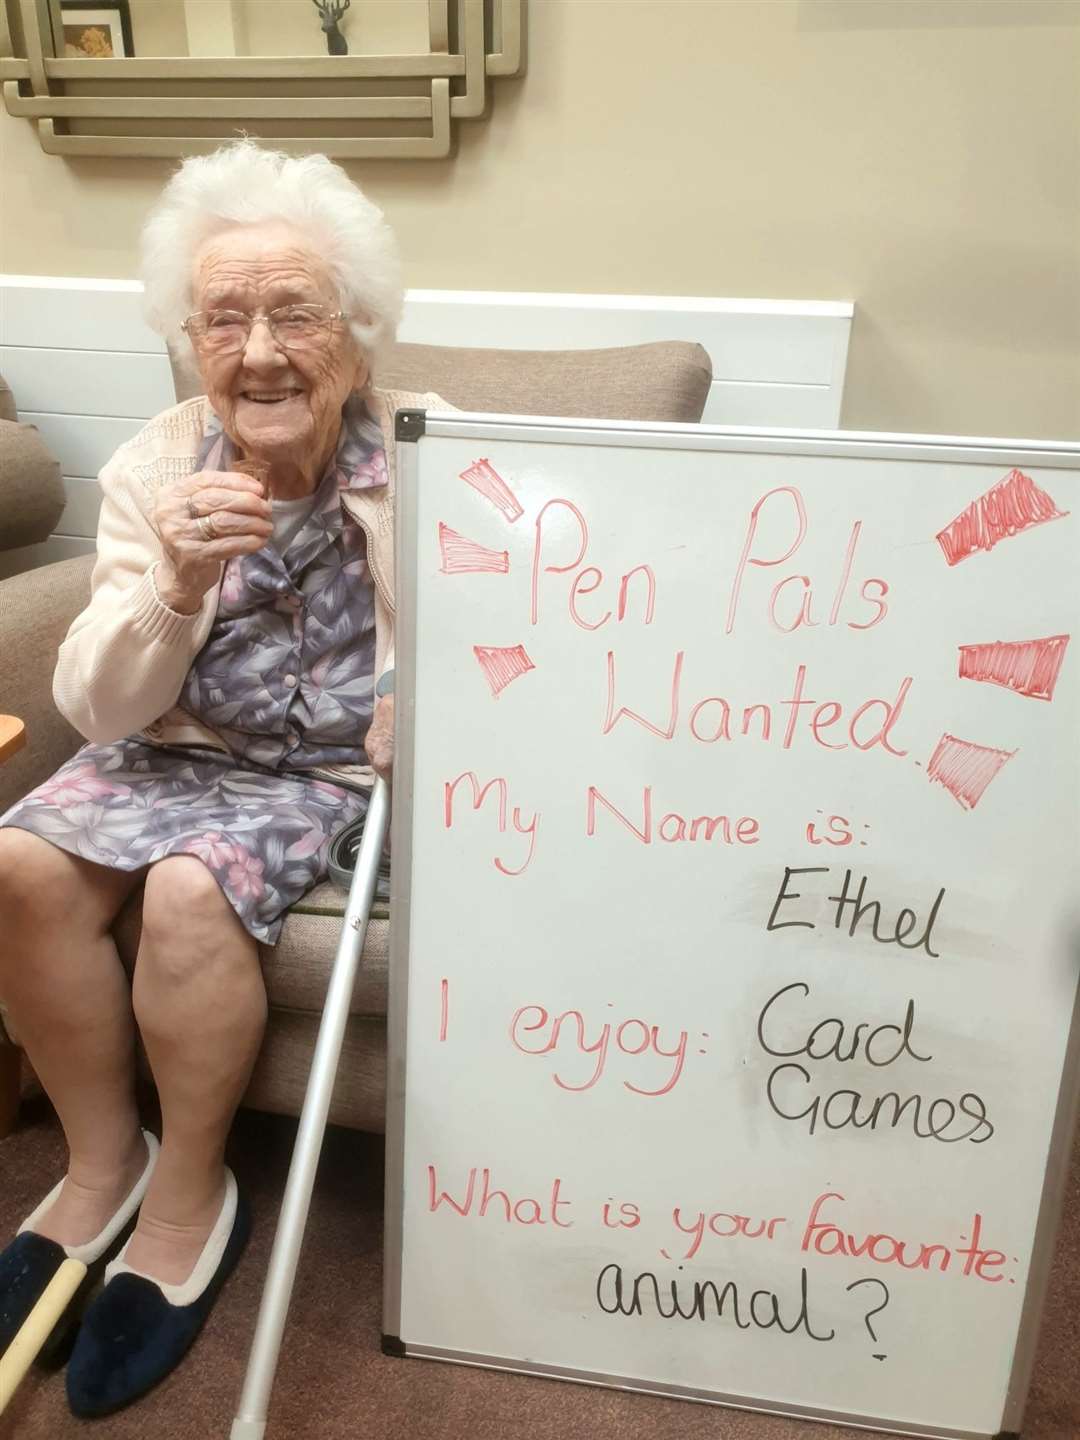 Pen Pals
Wanted.
My Name is:
Ethel
I enjoy: Card
Games
What is your favourite:
animal?